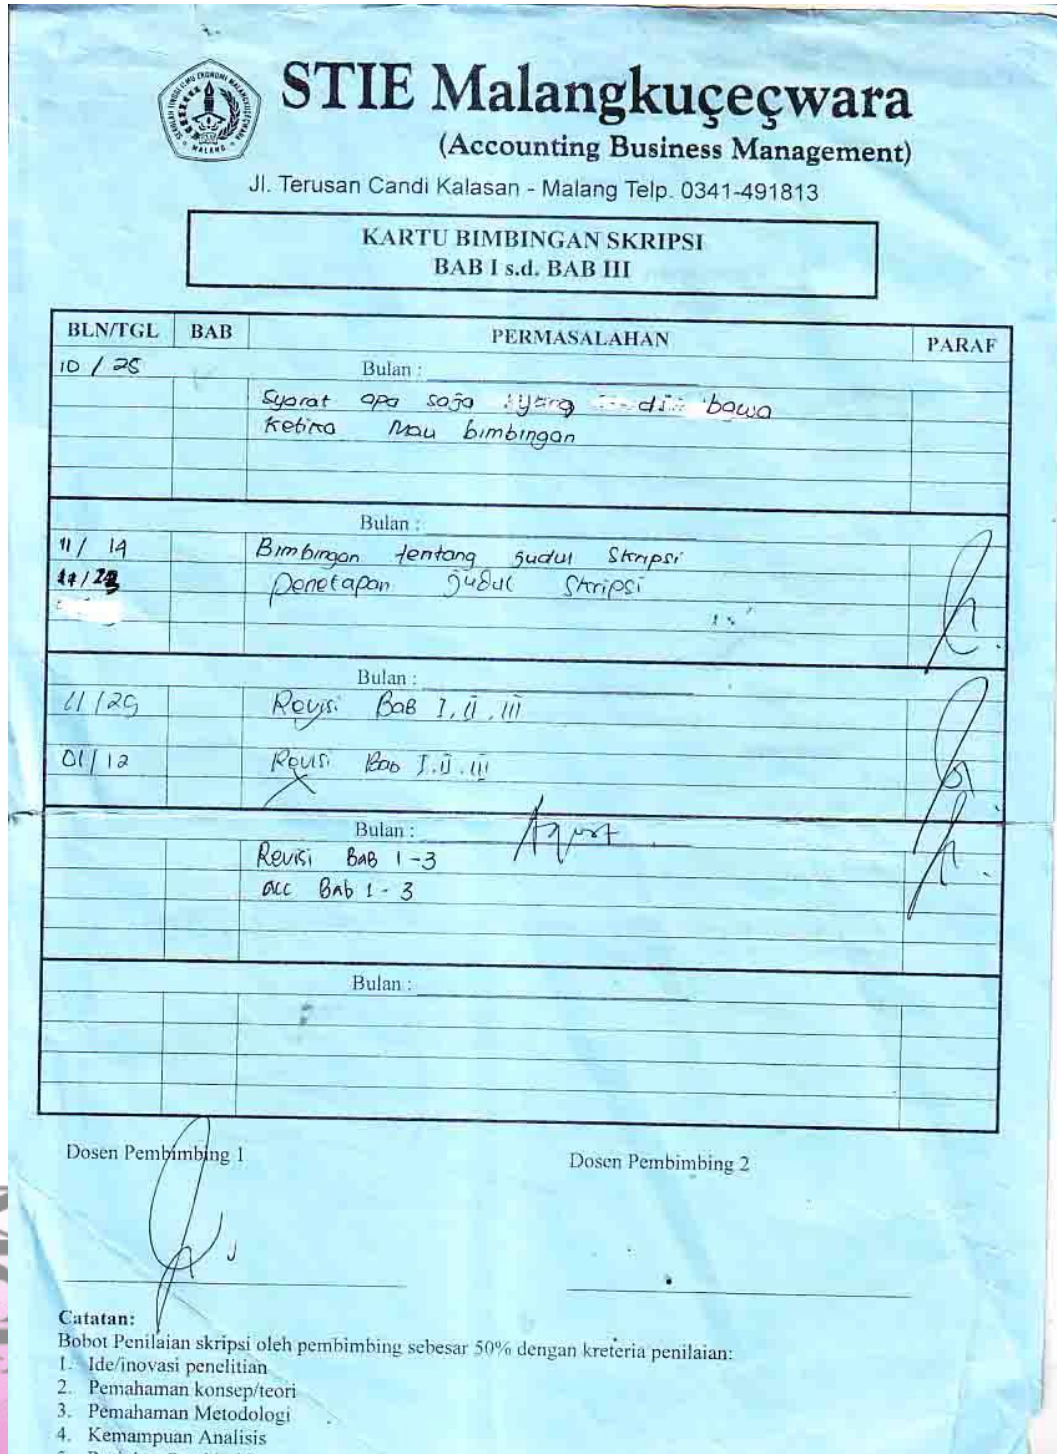 STIE Malangkuçeçwara
(Accounting Business Management)
Jl. Terusan Candi Kalasan - Malang Telp. 0341-491813
KARTU BIMBINGAN SKRIPSI
BAB I s.d. BAB III
BLN/TGL BAB PERMASALAHAN PARAF
10 / 25 Bulan :
Syarat apa saja yang bawa
Ketika Mau bimbingan
Bulan :
11/ 14 Bimbingan tentang judul Skripsi
Penetapan judul Skripsi
Bulan :
11/29 Revisi Bab I, II, III
01/12 Revisi Bab I.II.III
Bulan :
Revisi BAB 1-3
acc BAb 1-3
Bulan :
Dosen Pembimbing 1 Dosen Pembimbing 2
Catatan:
Bobot Penilaian skripsi oleh pembimbing sebesar 50% dengan kreteria penilaian:
1. Ide/inovasi penelitian
2. Pemahaman konsep/teori
3. Pemahaman Metodologi
4. Kemampuan Analisis